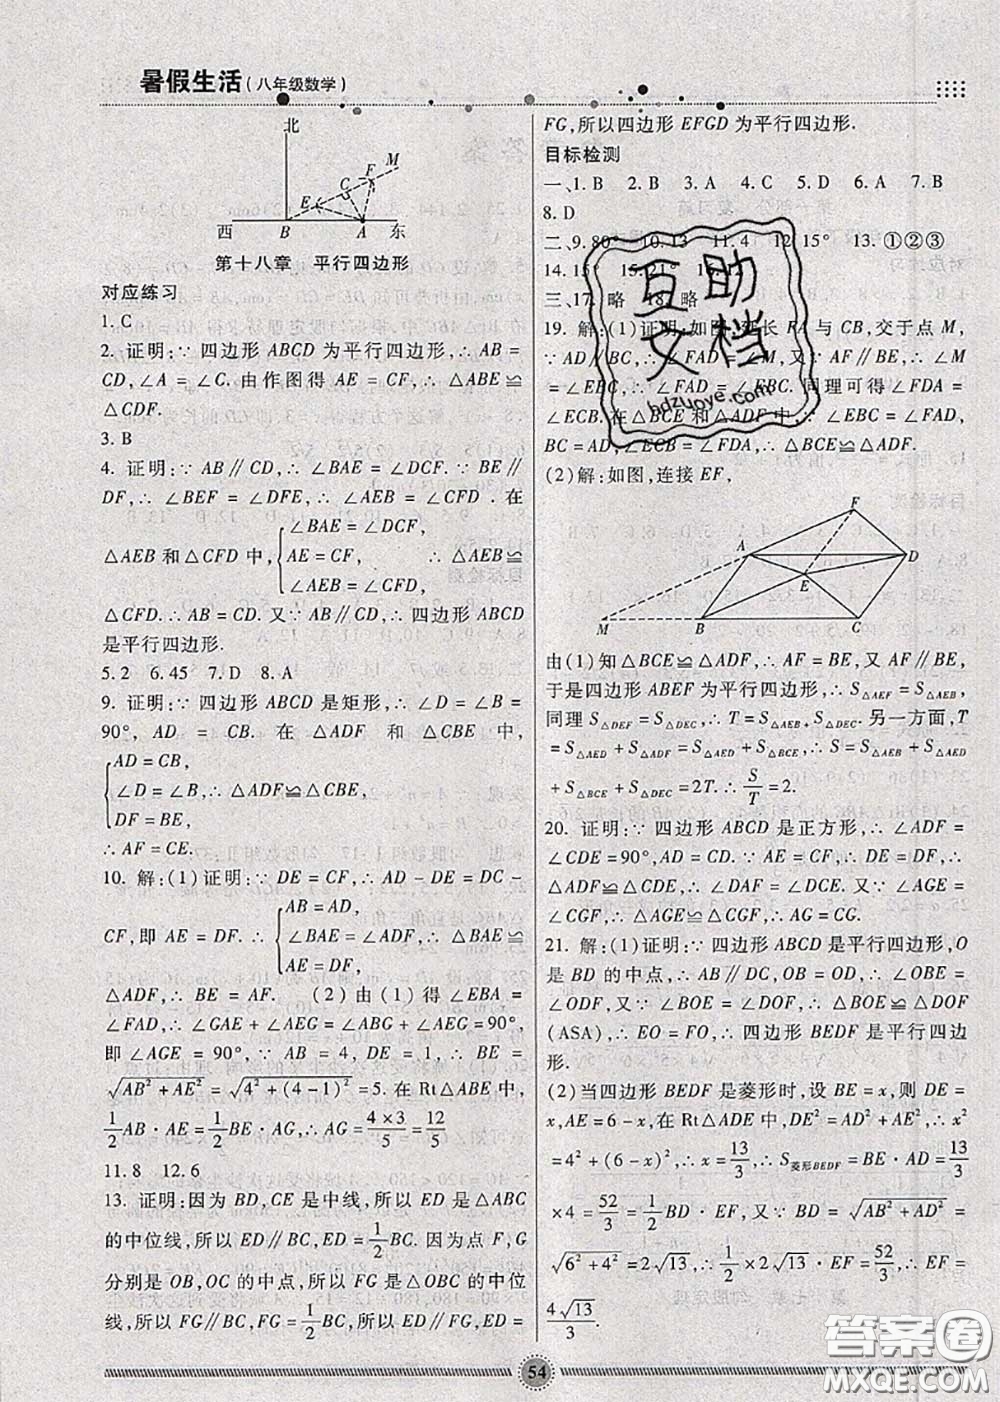 暑假生活(八年级数学)
北
M
F
C
E
西 B A 东
第十八章 平行四边形
对应练习
1. C
2. 证明:∵ 四边形 ABCD 为平行四边形,∴ AB =
CD,∠A = ∠C. 由作图得 AE = CF,∴ △ABE≌
△CDF.
3. B
4. 证明:∵ AB∥CD,∴ ∠BAE = ∠DCF. ∵ BE∥
DF,∴ ∠BEF = ∠DFE,∴ ∠AEB = ∠CFD . 在
△AEB 和 △CFD 中,{∠BAE = ∠DCF, AE = CF, ∠AEB = ∠CFD, ∴ △AEB≌
△CFD. ∴ AB = CD. 又 ∵ AB∥CD,∴ 四边形 ABCD
是平行四边形.
5. 2 6. 45 7. D 8. A
9. 证明:∵ 四边形 ABCD 是矩形,∴ ∠D = ∠B =
90°, AD = CB. 在 △ADF 和 △CBE 中,
{AD = CB, ∠D = ∠B, DF = BE, ∴ △ADF≌△CBE,
∴ AF = CE.
10. 解:(1)证明:∵ DE = CF,∴ AD - DE = DC -
CF,即 AE = DF. ∴ {AB = AD, ∠BAE = ∠ADF, AE = DF, ∴ △BAE≌
△ADF,∴ BE = AF. (2)由(1)得 ∠EBA =
∠FAD,∴ ∠GAE + ∠AEG = ∠ABG + ∠AEG = 90°,
即 ∠AGE = 90°, ∵ AB = 4, DE = 1, ∴ BE =
√(AB² + AE²) = √(4² + (4 - 1)²) = 5. 在 Rt△ABE 中,
1/2 AB · AE = 1/2 BE · AG,∴ AG = (4×3)/5 = 12/5
11. 8 12. 6
13. 证明:因为 BD,CE 是中线,所以 ED 是 △ABC
的中位线,所以 ED∥BC,ED = 1/2 BC. 因为点 F,G
分别是 OB,OC 的中点,所以 FG 是 △OBC 的中位
线,所以 FG∥BC,FG = 1/2 BC,所以 ED∥FG,ED =
FG,所以四边形 EFGD 为平行四边形.
目标检测
一、1. B 2. B 3. A 4. C 5. D 6. A 7. B
8. D
二、9. 80° 10. 13 11. 4 12. 15° 13. ①②③
14. 15° 15. 21° 16. 12
三、17. 略 18. 略
19. 解:(1)证明:如图,延长 FA 与 CB,交于点 M,
∵ AD∥BC,∴ ∠FAD = ∠M,又 ∵ AF∥BE,∴ ∠M
= ∠EBC,∴ ∠FAD = ∠EBC. 同理可得 ∠FDA =
∠ECB. 在 △BCE 和 △ADF 中,∵ ∠EBC = ∠FAD,
BC = AD,∠ECB = ∠FDA,∴ △BCE≌△ADF.
(2)解:如图,连接 EF,
F
A D
E
M B C
由(1)知 △BCE≌△ADF,∴ AF = BE,又 AF∥BE,
于是四边形 ABEF 为平行四边形,∴ S△AEF = S△AEB,
同理 S△DEF = S△DEC,∴ T = S△AEB + S△DEC. 另一方面,T
= S△AED + S△ADF = S△AED + S△BCE,∴ S = S△AEB + S△AED
+ S△BCE + S△DEC = 2T. ∴ S/T = 2.
20. 证明:∵ 四边形 ABCD 是正方形,∴ ∠ADF =
∠CDE = 90°,AD = CD. ∵ AE = CF,∴ DE = DF,∴
△ADF≌△CDE,∴ ∠DAF = ∠DCE. 又 ∵ ∠AGE =
∠CGF,∴ △AGE≌△CGF,∴ AG = CG.
21. 解:(1)证明:∵ 四边形 ABCD 是平行四边形,O
是 BD 的中点,∴ AB∥DC,OB = OD,∴ ∠OBE =
∠ODF,又 ∵ ∠BOE = ∠DOF,∴ △BOE≌△DOF
(ASA),∴ EO = FO,∴ 四边形 BEDF 是平行四边
形.
(2)当四边形 BEDF 是菱形时,设 BE = x,则 DE =
x,AE = 6 - x,在 Rt△ADE 中,DE² = AD² + AE²,∴ x²
= 4² + (6 - x)²,∴ x = 13/3,∴ S菱形BEDF = BE · AD = 13/3
×4 = 52/3 = 1/2 BD · EF,又 ∵ BD = √(AB² + AD²) =
√(6² + 4²) = 2√13,∴ 1/2 × 2√13 · EF = 52/3,∴ EF =
4√13/3.
54
互助
文档
bdzuoye.com
答案圈
MXQE.COM